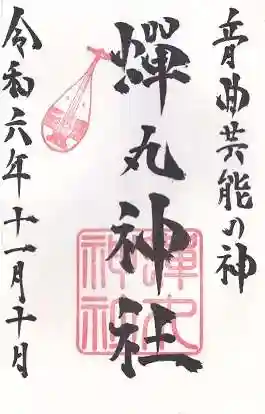 音曲芸能の神
蟬丸神社
令和六年十一月十日
蝉丸神社